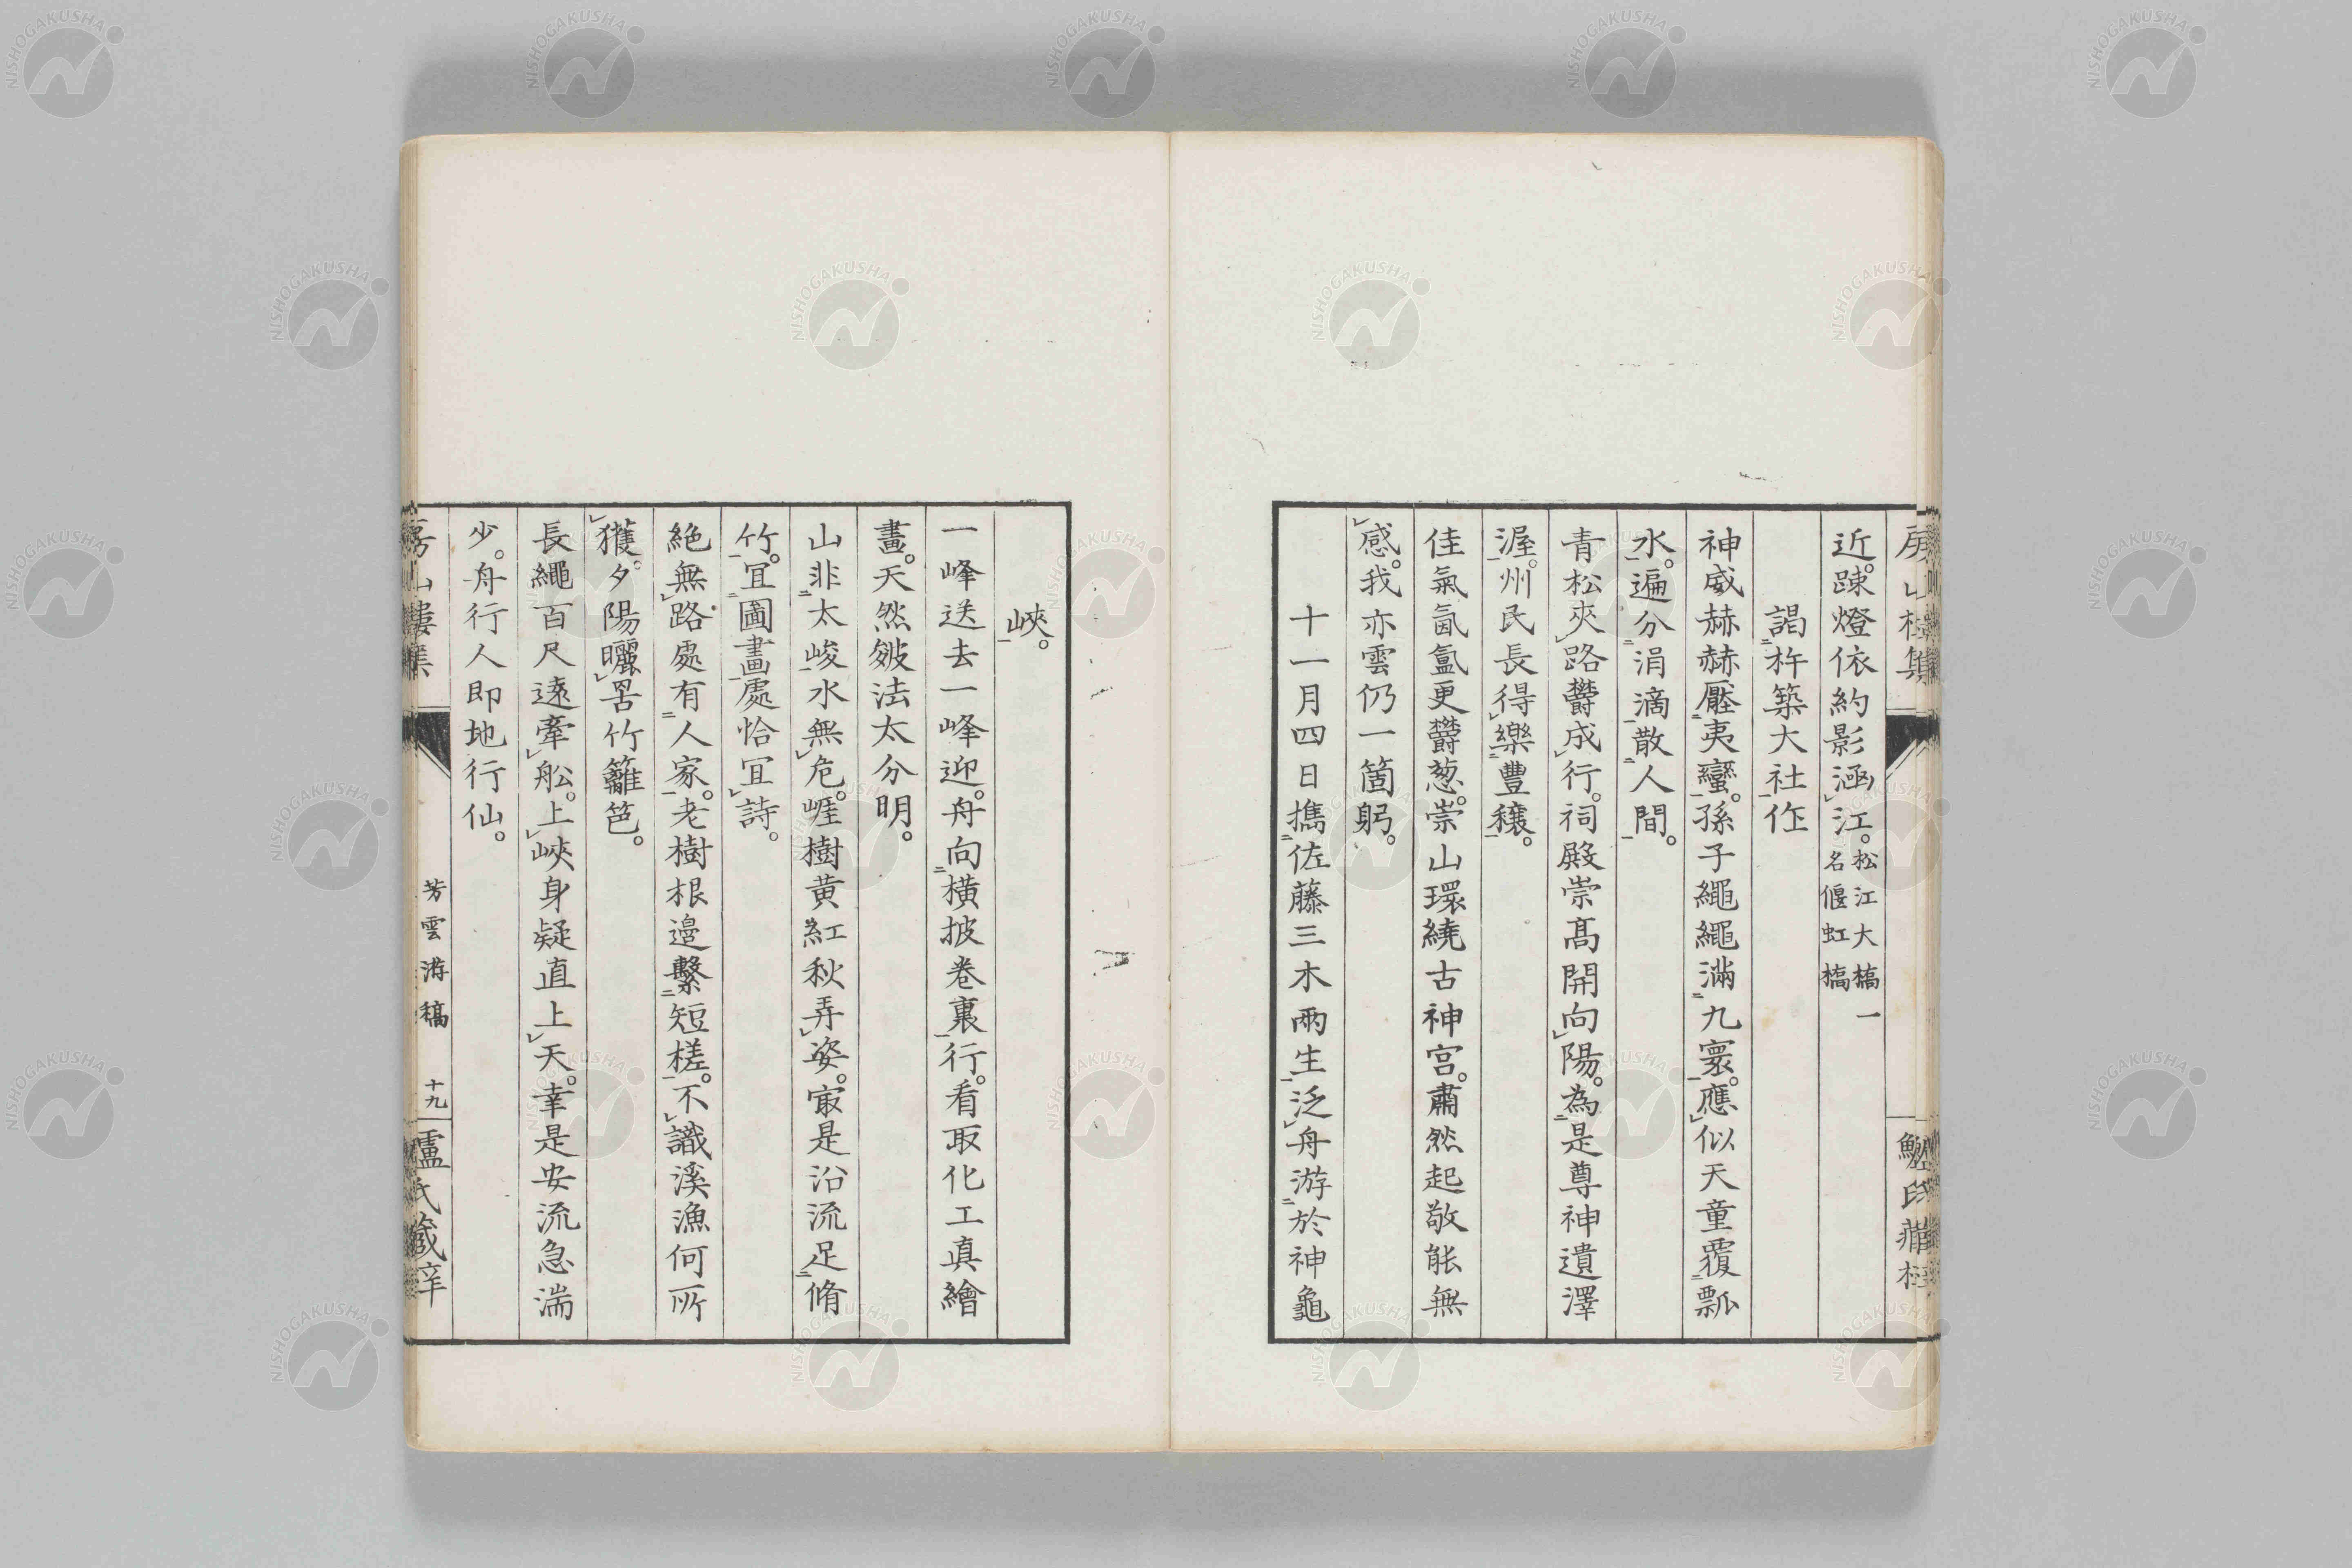 近。踈燈依約影涵江。松江大橋一名偃虹橋
謁杵築大社作
神威赫赫壓夷蠻。孫子繩繩滿九寰。應似天童覆瓢
水。遍分涓滴散人間。
青松夾路欝成行。祠殿崇高開向陽。為是尊神遺澤
渥。州民長得樂豐穰。
佳氣氤氳更欝葱。崇山環繞古神宮。肅然起敬能無
感。我亦雲仍一箇躬。
十一月四日攜佐藤三木兩生泛舟游於神龜
峽。
一峰送去一峰迎。舟向橫披卷裏行。看取化工真繪
畫。天然皴法太分明。
山非太峻水無危。崕樹黄紅秋弄姿。㝡是沿流足脩
竹。冝圖畫處恰冝詩。
絶無路處有人家。老樹根邉繫短槎。不識溪漁何所
獲。夕陽曬罟竹籬笆。
長繩百尺遠牽舩。上峽身疑直上天。幸是安流急湍
少。舟行人即地行仙。
芳雲游稿 十九
NISHOGAKUSHA